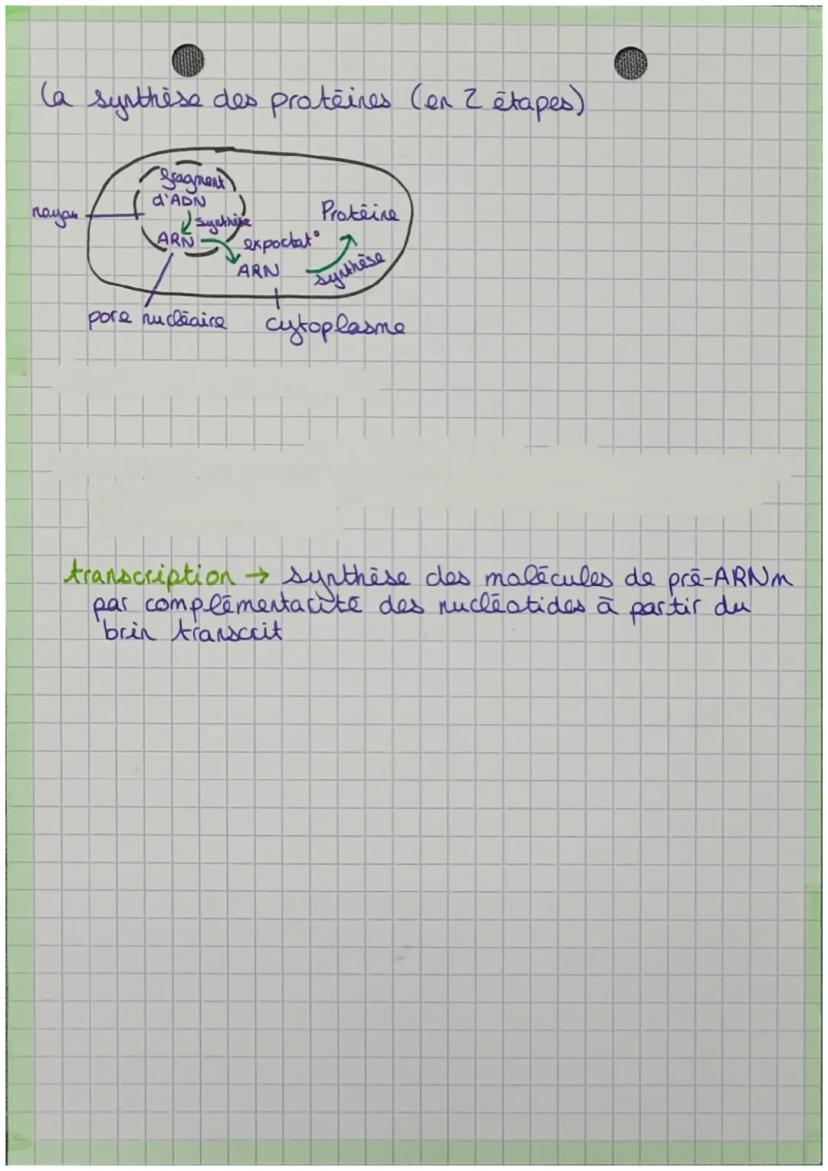 La synthèse des protéines (en 2 étapes)
fragment
d'ADN
noyau
synthèse
Protéine
ARN
exportat°
ARN
synthèse
pore nucléaire
cytoplasme
transcription → synthèse des molécules de pré-ARNm
par complémentarité des nucléotides à partir du
brin transcrit